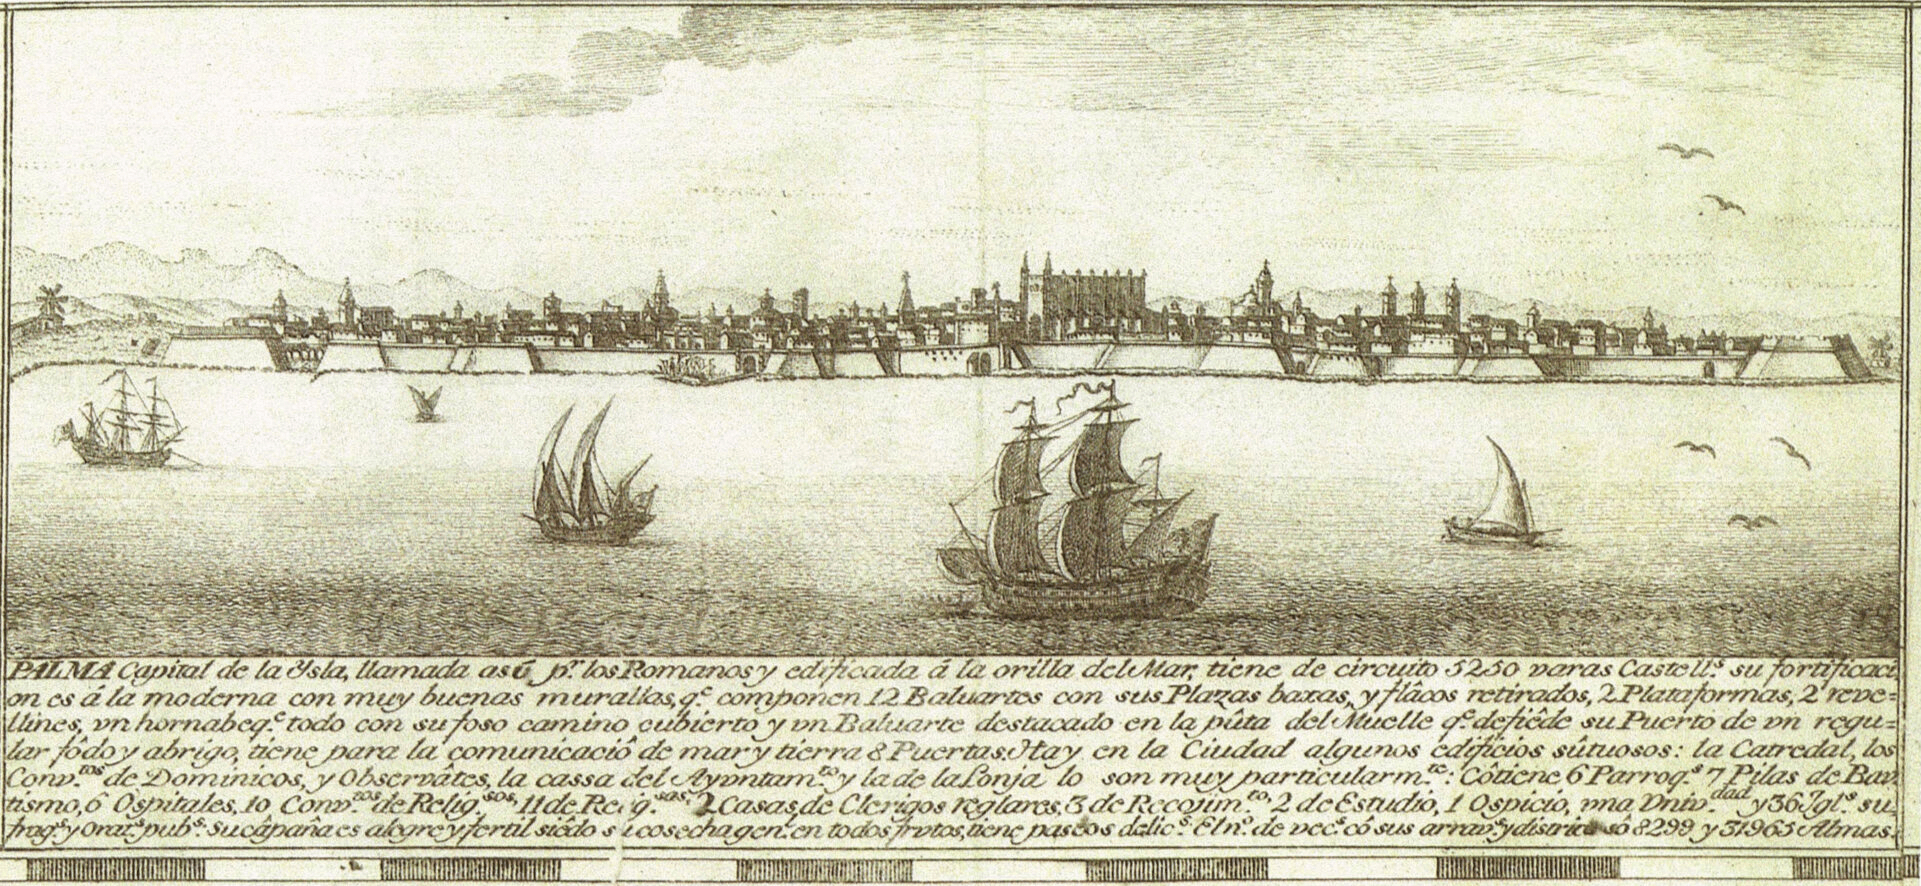 PALMA Capital de la Ysla, llamada así pr. los Romanos y edificada á la orilla del Mar, tiene de circuito 5250 varas Castells. su fortificaci
on es á la moderna con muy buenas murallas, qe. componen 12 Baluartes con sus Plazas baxas, y flácos retirados, 2 Plataformas, 2 reve=
llines, vn hornabeqe. todo con su foso camino cubierto y vn Baluarte destacado en la púta del Muelle qe. defiéde su Puerto de vn regu=
lar fôdo y abrigo, tiene para la comunicació de mar y tierra 8 Puertas. Hay en la Ciudad algunos edificios sûtuosos: la Catredal, los
Convtos. de Dominicos, y Observátes, la cassa del Ayvntamto. y la de la Lonja lo son muy particularmte.: Côtiene 6 Parroqs. 7 Pilas de Bau
tismo, 6 Ospitales, 10 Convtos. de Religsos, 11 de Religsas, 2 Casas de Clerigos reglares, 3 de Recojimto, 2 de Estudio, 1 Ospicio, vna Vnivdad. y 36 Igls. su
frags. y orats. pubs. su câpaña es alegre y fertil siêdo su cosecha gen. en todos frvtos, tiene paseos delics. El no. de vecs. có sus arravs. y distrito sô 8299 y 31965 Almas.